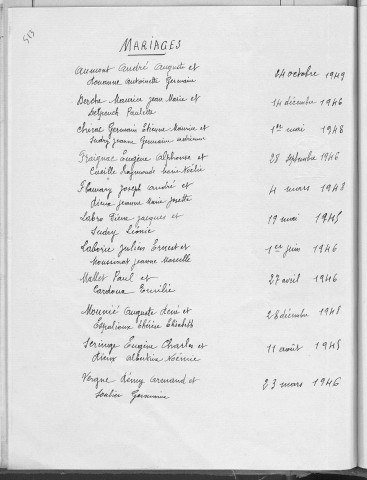 513
MARIAGES
Aumont André Auguste et
Antoinette Germaine 24 octobre 1949
Berche Maurice Jean Marie et
Paulette 14 décembre 1946
Germain Etienne Maurice et
Sudry Jeanne Germaine 1er mai 1948
Fraignac Eugène Alphonse et
Raymonde Marie Noélie 28 septembre 1946
Joseph André et
Dieux Jeanne Marie Josette 4 mars 1948
Labro Pierre Jacques et
Sudry Léonie 19 mai 1945
Laborie Julien Ernest et
Jeanne Marcelle 1er juin 1946
Mallet Paul et
Cardoux Emilie 27 avril 1946
Mounié Auguste René et
Espalioux Thérèse Elisabeth 28 décembre 1948
Seringe Eugène Charles et
Dieux Albertine Noémie 11 août 1945
Vergne Rémy Armand et
Soulier Germaine 23 mars 1946